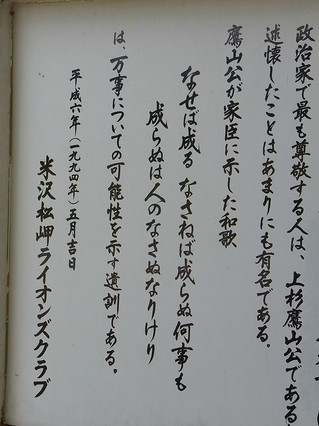 政治家で最も尊敬する人は、上杉鷹山公である
述懐したことはあまりにも有名である。
鷹山公が家臣に示した和歌
なせば成る なさねば成らぬ 何事も
成らぬは人の なさぬなりけり
は、万事についての可能性を示す遺訓である。
平成六年(一九九四年)五月吉日
米沢松岬ライオンズクラブ